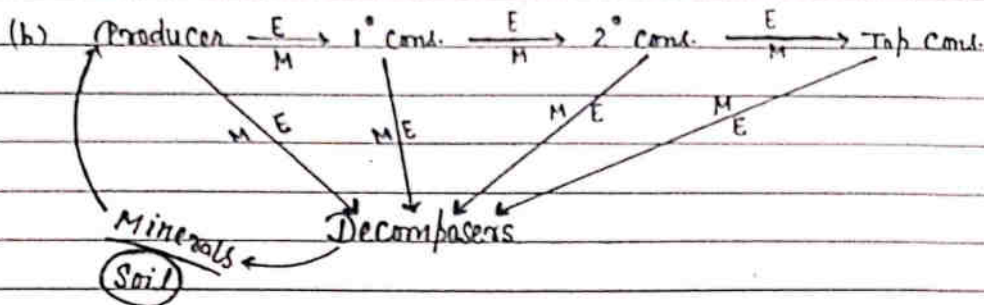 (b) Producer E M 1° Cons. E M 2° Cons. E M Top Cons.
M E M E M E M E
Decomposers
Minerals
Soil